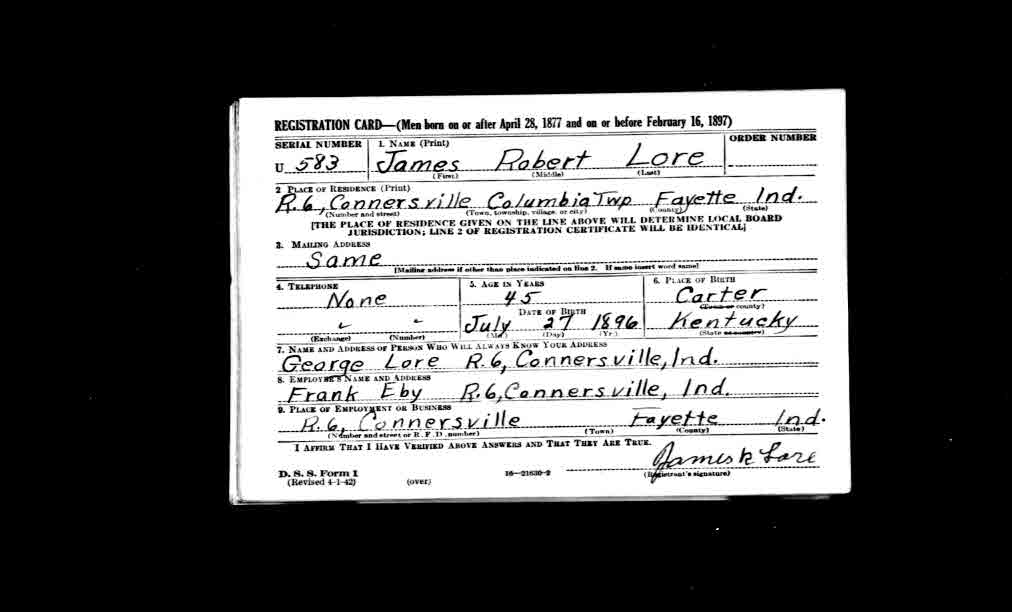 REGISTRATION CARD—(Men born on or after April 28, 1877 and on or before February 16, 1897)
SERIAL NUMBER 1. NAME (Print) ORDER NUMBER
U 583 James Robert Lore
(First) (Middle) (Last)
2 PLACE OF RESIDENCE (Print)
R.6, Connersville Columbia Twp Fayette Ind.
(Number and street) (Town, township, village, or city) (County) (State)
[THE PLACE OF RESIDENCE GIVEN ON THE LINE ABOVE WILL DETERMINE LOCAL BOARD
JURISDICTION; LINE 2 OF REGISTRATION CERTIFICATE WILL BE IDENTICAL]
3. MAILING ADDRESS
Same
[Mailing address if other than place indicated on line 2. If same insert word same]
4. TELEPHONE 5. AGE IN YEARS 6. PLACE OF BIRTH
None 45 Carter
(Town or county)
DATE OF BIRTH
" " July 27 1896 Kentucky
(Exchange) (Number) (Mo.) (Day) (Yr.) (State or country)
7. NAME AND ADDRESS OF PERSON WHO WILL ALWAYS KNOW YOUR ADDRESS
George Lore R.6, Connersville, Ind.
8. EMPLOYER'S NAME AND ADDRESS
Frank Eby R.6, Connersville, Ind.
9. PLACE OF EMPLOYMENT OR BUSINESS
R.6, Connersville Fayette Ind.
(Number and street or R. F. D. number) (Town) (County) (State)
I AFFIRM THAT I HAVE VERIFIED ABOVE ANSWERS AND THAT THEY ARE TRUE.
James R Lore
D. S. S. Form 1 16—21630-2 (Registrant's signature)
(Revised 4-1-42) (over)